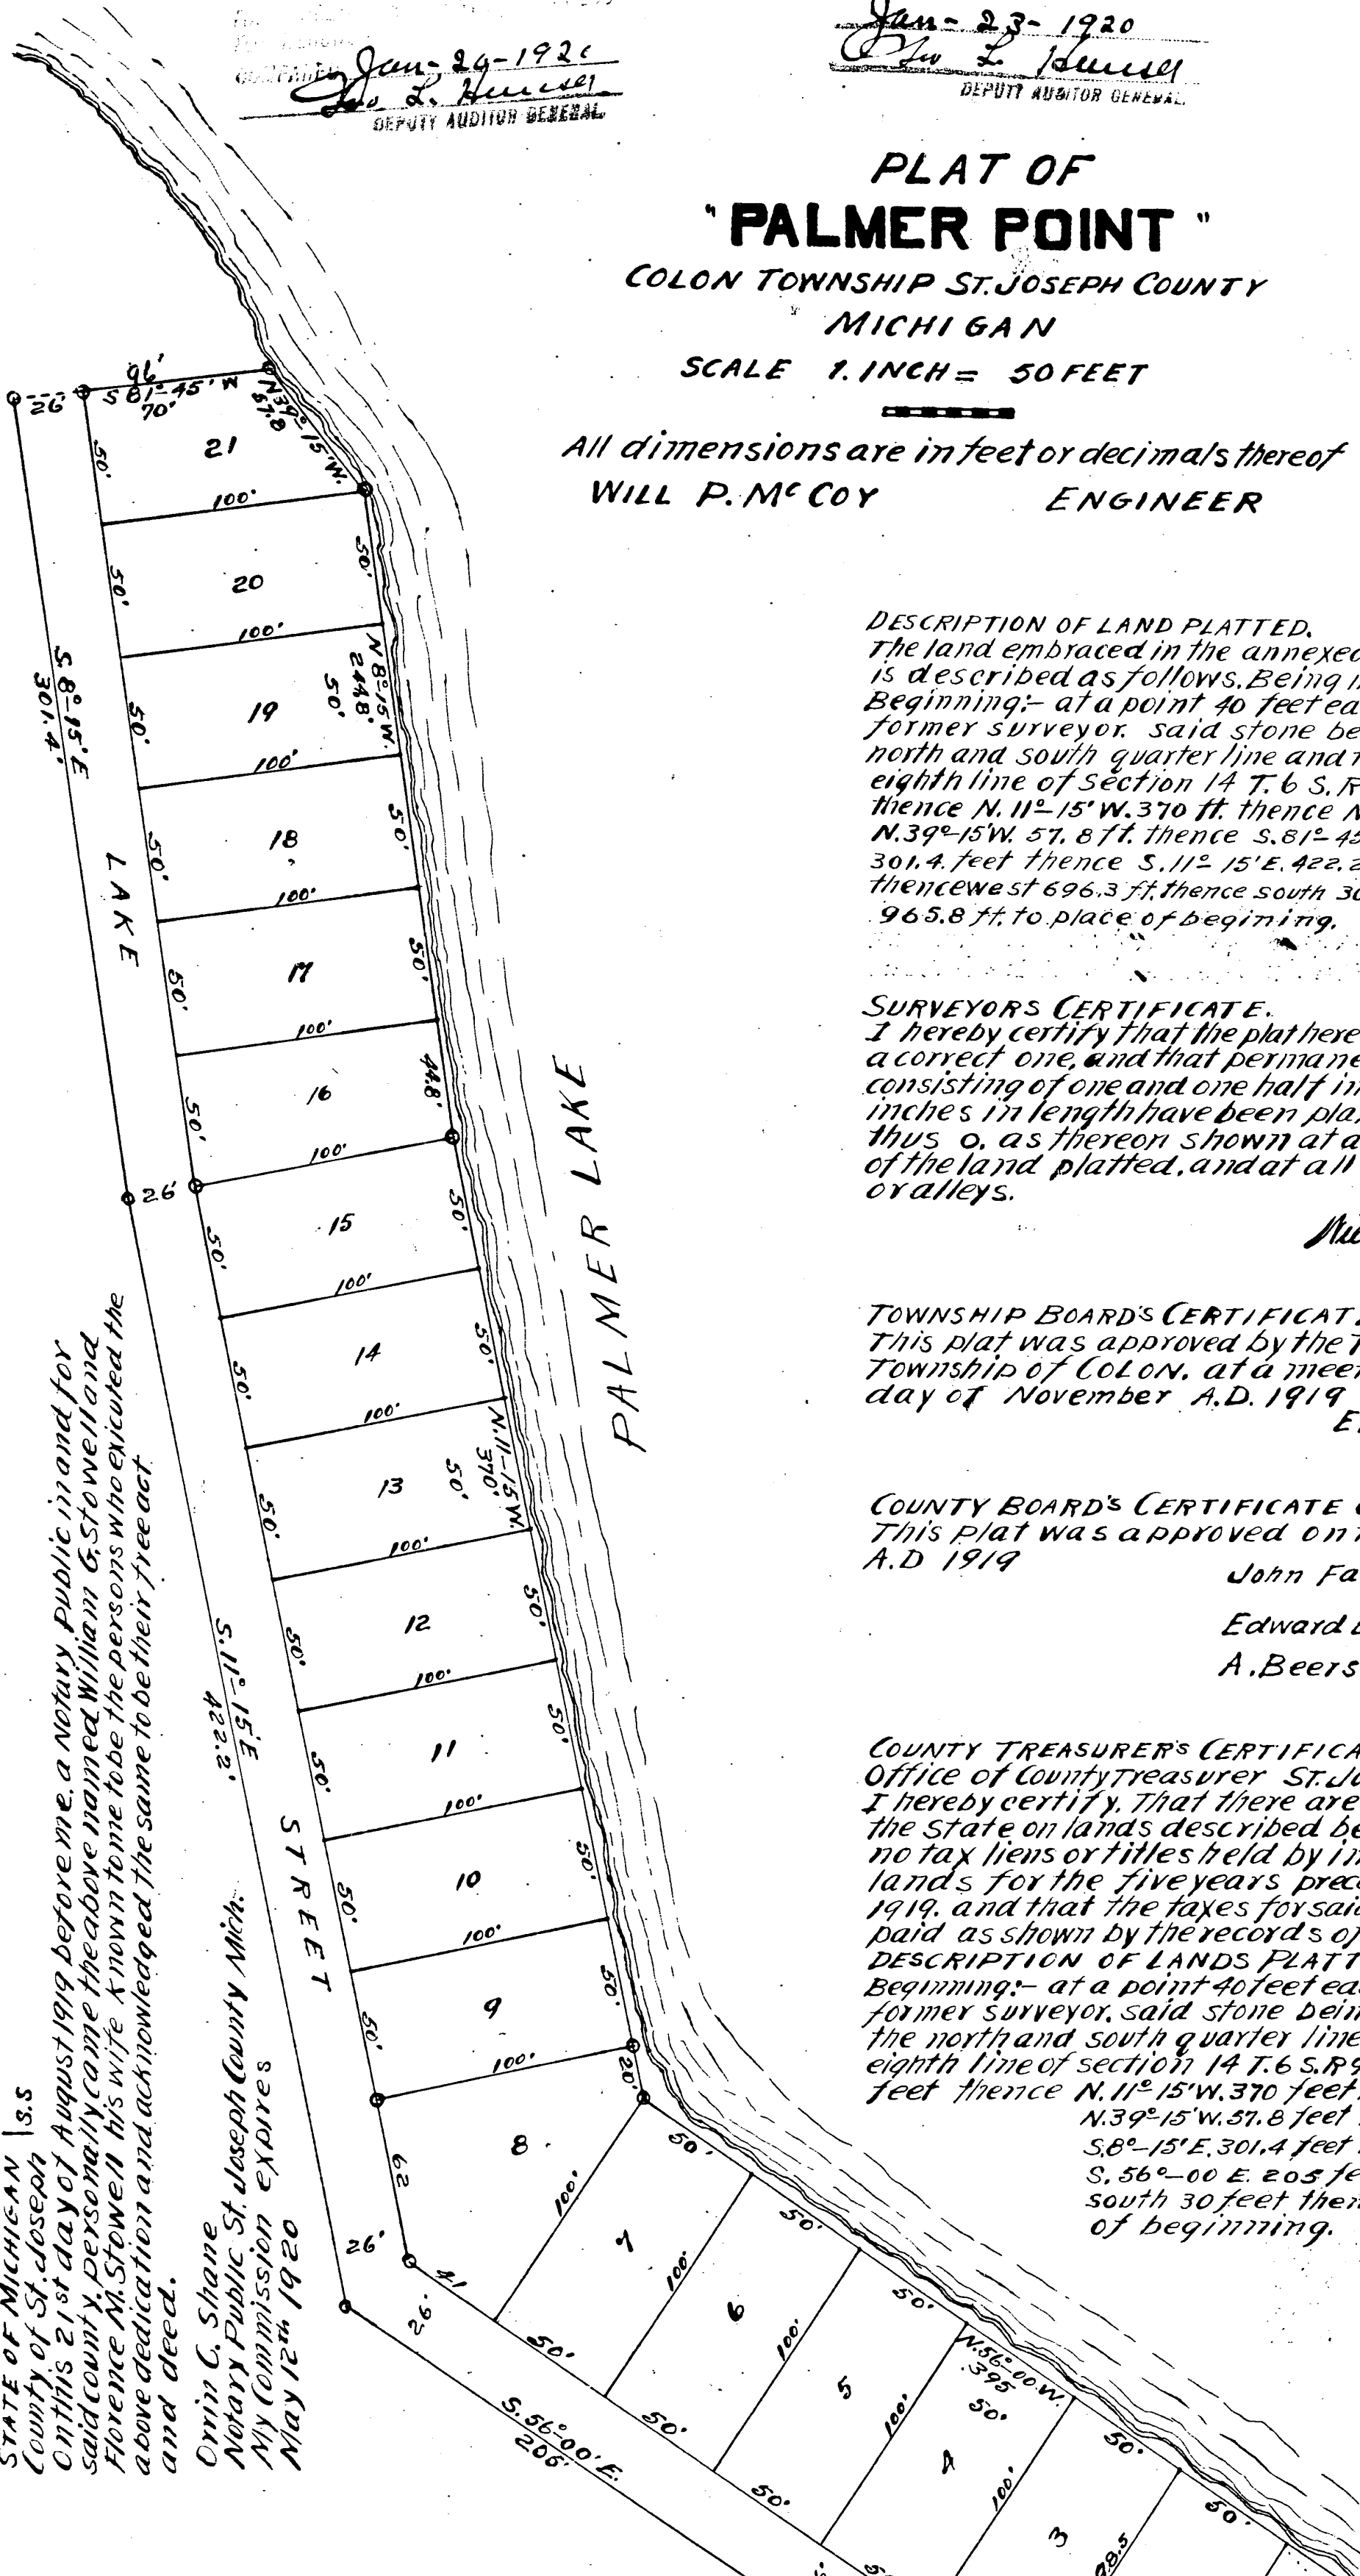 Jan- 29-192
Geo L. Hunsel
DEPUTY AUDITOR GENERAL
Jan- 23- 1920
Geo L. Hunsel
DEPUTY AUDITOR GENERAL
PLAT OF
"PALMER POINT"
COLON TOWNSHIP ST. JOSEPH COUNTY
MICHIGAN
SCALE 1. INCH = 50 FEET
All dimensions are in feet or decimals thereof
WILL P. McCOY ENGINEER
DESCRIPTION OF LAND PLATTED.
The land embraced in the annexed
is described as follows. Being
Beginning:- at a point 40 feet ea
former surveyor. said stone be
north and south quarter line and
eighth line of Section 14 T. 6 S. R
thence N. 11°-15' W. 370 ft. thence N
N. 39°-15'W. 57.8 ft. thence S. 81°-45
301.4. feet thence S. 11° 15' E. 422.2
thence west 696.3 ft. thence south 30
965.8 ft. to place of begining.
SURVEYORS CERTIFICATE.
I hereby certify that the plat here
a correct one, and that permane
consisting of one and one half in
inches in length have been pla
thus o. as thereon shown at a
of the land platted, and at all
or alleys.
TOWNSHIP BOARD'S CERTIFICAT
This plat was approved by the T
Township of COLON. at a meet
day of November A.D. 1919
E.
COUNTY BOARD'S CERTIFICATE
This plat was approved on
A.D 1919
John Fa
Edward
A. Beers
COUNTY TREASURER'S CERTIFICA
Office of County Treasurer ST. JO
I hereby certify. That there are
the State on lands described be
no tax liens or titles held by in
lands for the five years prec
1919. and that the taxes for said
paid as shown by the records of
DESCRIPTION OF LANDS PLATT
Beginning:- at a point 40 feet ea
former surveyor. said stone bein
the north and south quarter line
eighth line of section 14 T. 6 S. R 9
feet thence N. 11° 15' W. 370 feet.
N. 39°-15' W. 57.8 feet
S. 8°-15' E. 301.4 feet
S. 56°-00 E. 205 fe
south 30 feet then
of beginning.
96'
26' S 81°-45' W
70'
N 39°-15' W.
57.8
50' 21
100'
50' 20 50'
100'
N 8°-15 W.
244.8'
50' 19 50'
100'
50' 18 50'
100'
50' 17 50'
100'
50' 16 44.8'
100'
S 8°-15' E
301.4'
26'
50' 15 50'
100'
50' 14 50'
100'
N. 11-15 W.
370'
50' 13 50'
100'
50' 12 50'
100'
50' 11 50'
100'
50' 10 50'
100'
50' 9 50'
100'
S. 11°-15' E
422.2'
LAKE STREET
PALMER LAKE
20'
62 8
100'
26' 41
26'
50' 7 50'
100'
50' 6 50'
100'
50' 5 50'
100'
N. 56°-00 W.
395
4 50'
100'
3 50'
98.5
50'
S. 56°-00' E.
206'
STATE OF MICHIGAN | S.S
County of St. Joseph
On this 21st day of August 1919 before me. a Notary Public in and for
said county, personally came the above named William G. Stowell and
Florence M. Stowell his wife known to me to be the persons who exicuted the
above dedication and acknowledged the same to be their free act
and deed.
Orrin C. Shane
Notary Public St. Joseph County Mich.
My Commission expires
May 12th 1920